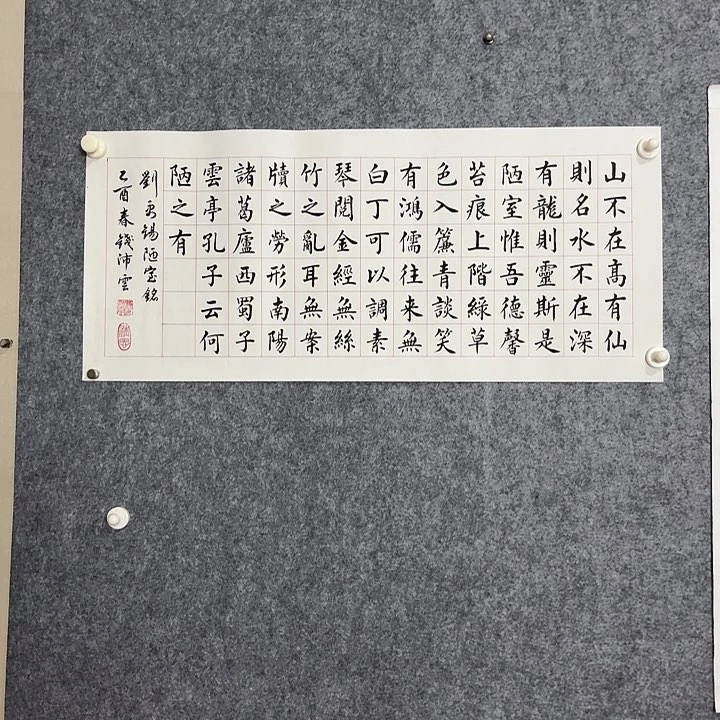 山不在髙有仙
則名水不在深
有龍則靈斯是
陋室惟吾德馨
苔痕上階綠草
色入簾青談笑
有鴻儒往来無
白丁可以調素
琴閱金經無絲
竹之亂耳無案
牘之勞形南陽
諸葛廬西蜀子
雲亭孔子云何
陋之有
劉禹錫陋室銘
乙酉春錢沛雲